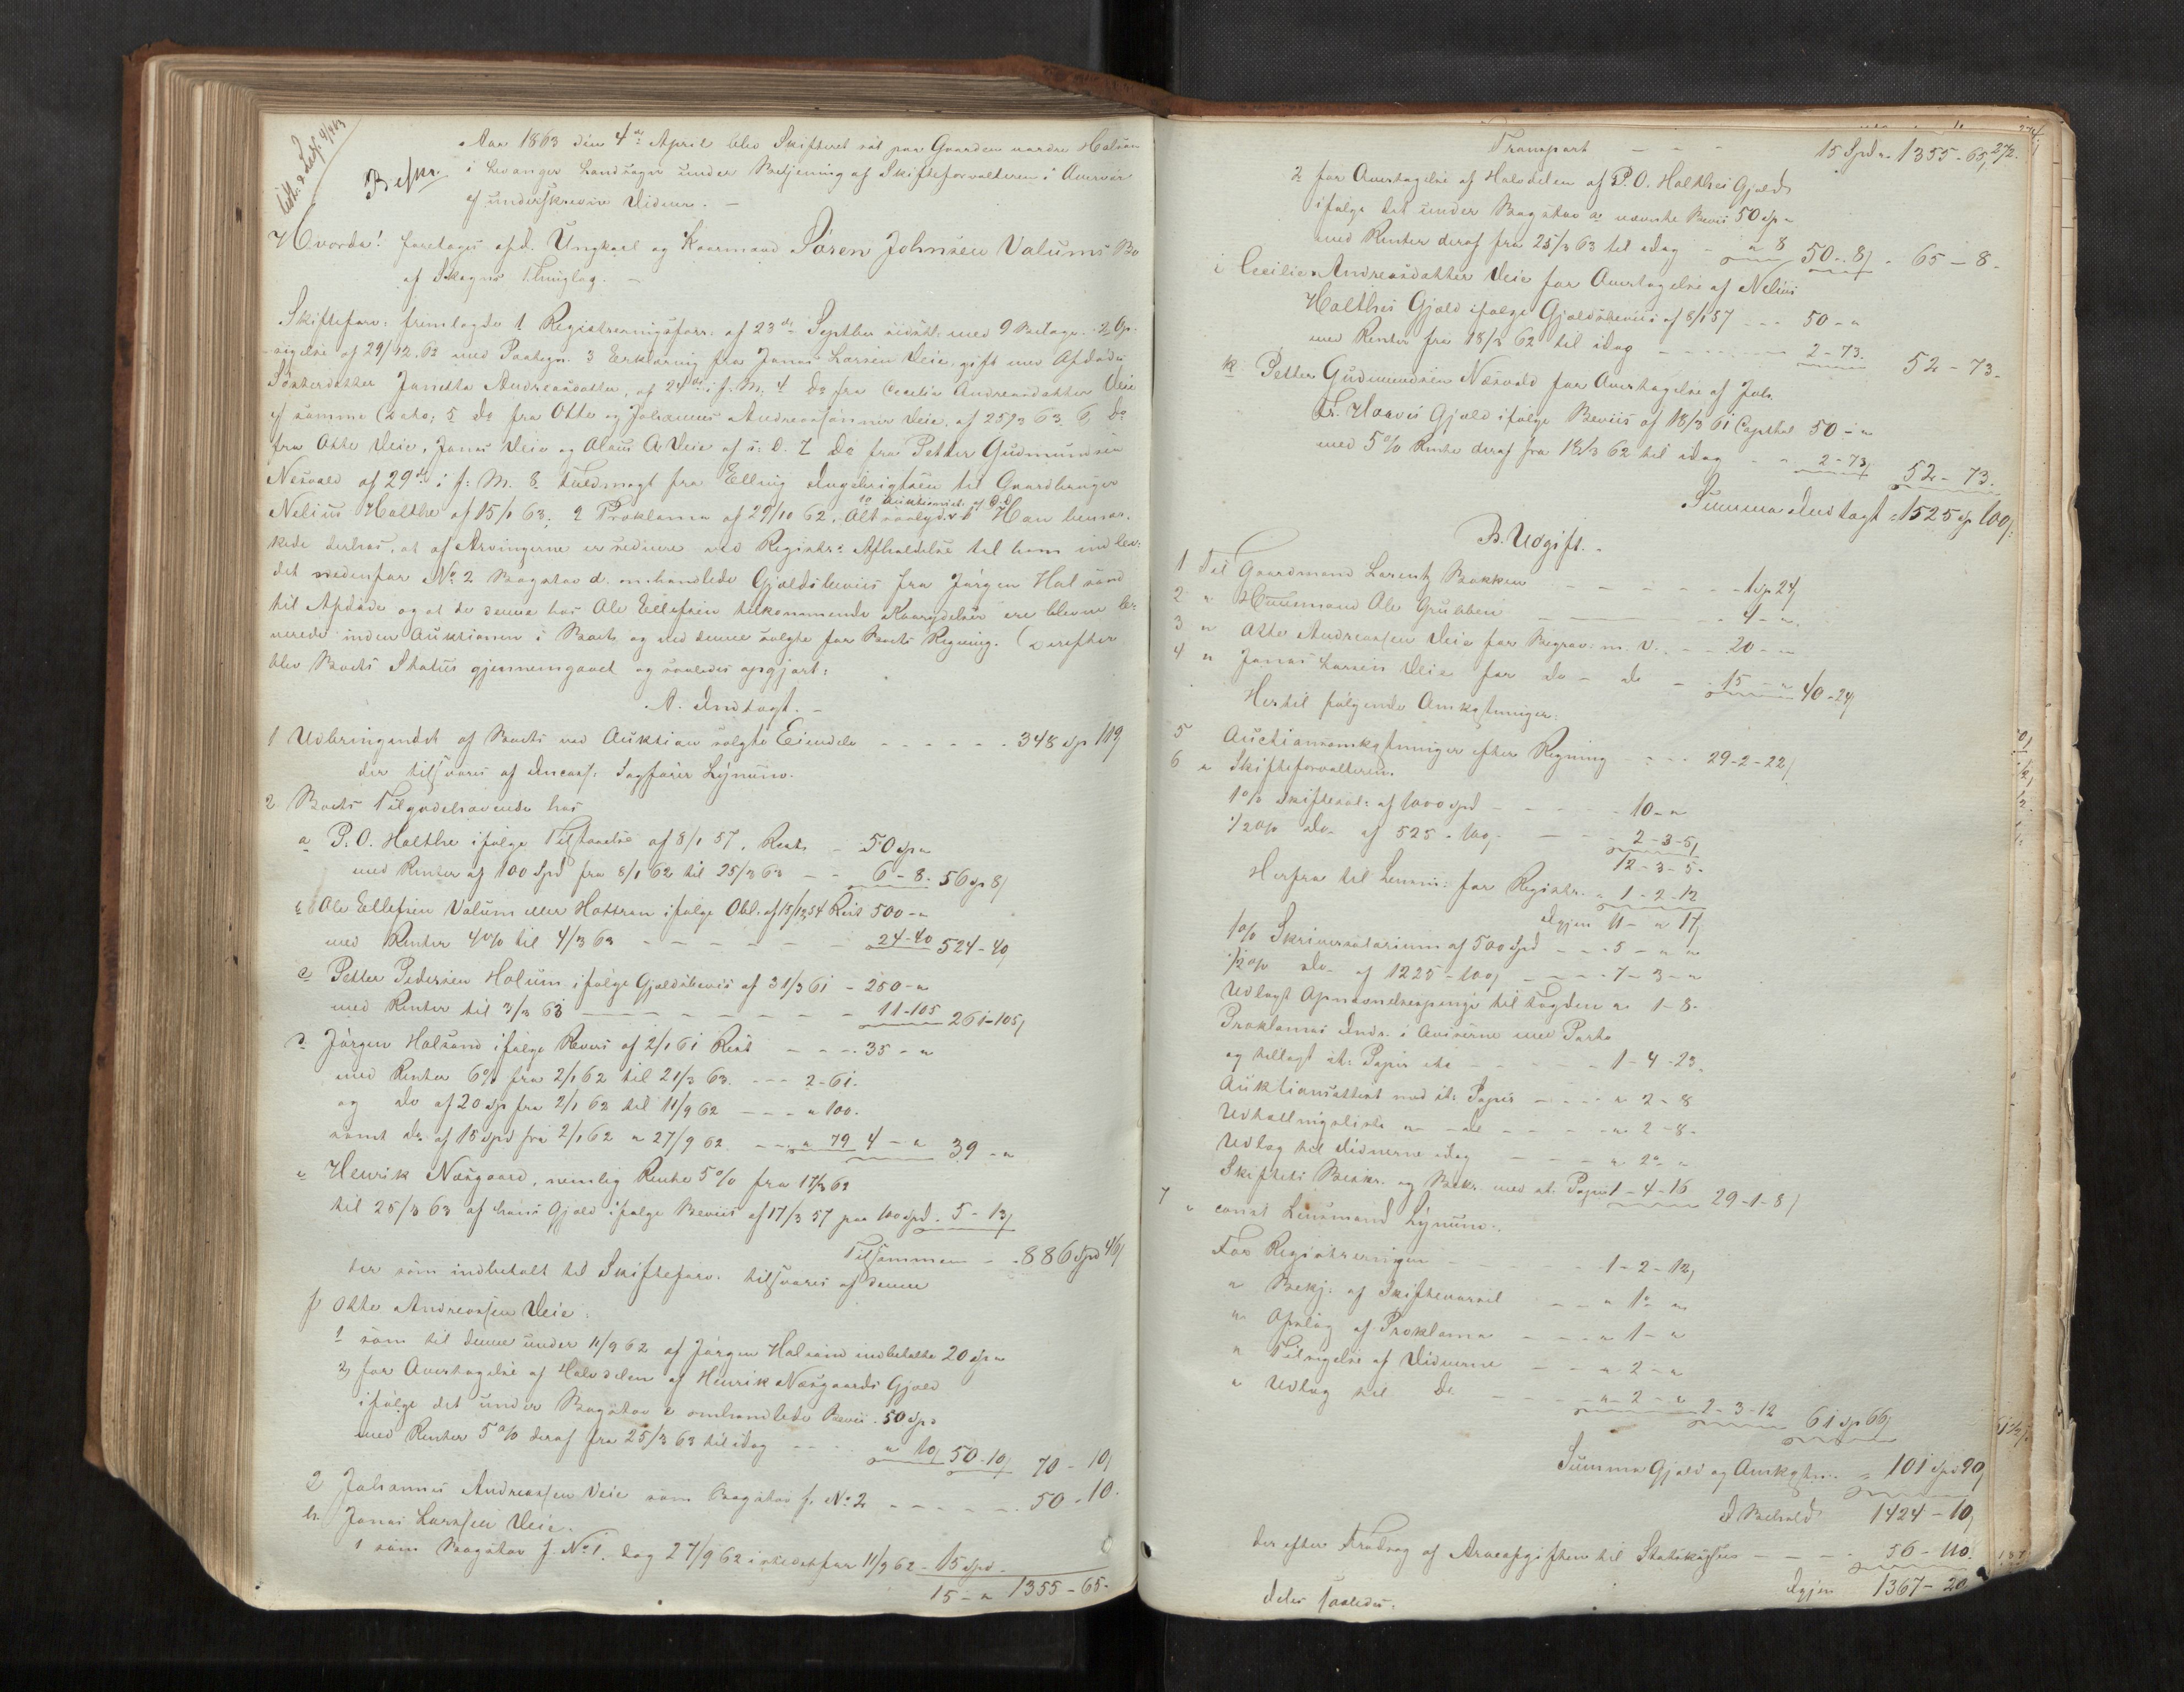 Beskr.
Aar 1863 den 4de April blev Skifteret sat paa Gaarden nordre Halsan
i Levanger Landsogn under Betjening af Skifteforvalteren i Overvær
af underskrevne Vidner. –
Hvorda! foretoges afd. Ungkarl og Kaarmand Sören Johnsen Valums Bo
af Skogns Thinglag. –
Skifteforv. fremlagde 1 Registreringsforr. af 23de Septbr sidstl. med 9 Bilage. 2 Op-
sigelse af 29/12 62 med Paategn. 3 Erklæring fra Jonas Larsen Veie, gift med Afdødes
Søsterdatter Janetta Andreasdatter, af 24de i f. M. 4 Do fra Cecelia Andreasdatter Veie
af samme Dato; 5 Do fra Otto og Johannes Andreassönner Veie, af 25/3 63. 6 Do
fra Otto Veie, Jonas Veie og Olaus A Veie af s. D. 7 Do fra Petter Gudmundsen
Nesvald af 29de i f. M. 8 Fuldmagt fra Elling Ingebrigtsen til Gaardbruger
Nelius Holthe af 15/1 63. 9 Proklama af 29/10 62. 10 Auktionsatt. af D.D. Alt saalyd. Han bemær-
kede derhos, at af Arvingerne er sednere ved Registr. Afholdelse til ham indlev-
det nedenfor No 2 Bogstav d. omhandlede Gjældsbeviis fra Jörgen Halsand
til Afdöde og at de denne hos Ole Ellefsen tilkommende Kaarydelser ere blevne le-
verede inden Auktionen i Boet og ved denne solgte for Boets Regning. Derefter
blev Boets Status gjennemgaaet og saaledes opgjort:
A. Indtægt. –
1 Udbringendet af Boets ved Auktion solgte Eiendele – – – – – – 348 Sp 119
der tilsvares af Incass. Sagförer Lynum.
2 Boets Tilgodehavende hos
a P. O. Holthe ifölge Tilstaaelse af 8/1 57, Rest – 50 Sp „
med Renter af 100 Spd fra 8/1 62 til 25/3 63 – – 6 – 8. 56 Sp 8
b Ole Ellefsen Valum eller Hottran ifölge Obl. af 15/12 54 Rest 500 – „
med Renter 4% til 4/3 63 – – – – – – 24–40 524–40
c Petter Pedersen Holum ifölge Gjældsbevis af 31/3 61 – 250 – „
med Renter til 3/3 63 – – – – – – – – 11–105 261–105
d Jörgen Halsand ifölge Revers af 2/1 61 Rest – – – 35 – „
med Renter 6% fra 2/1 62 til 21/3 63. – – – 2–61.
og do af 20 Sp fra 2/1 62 til 11/9 62 – – – „ 100.
samt do af 15 Spd fra 2/1 62 „ 27/9 62 – – „ 79 4 – „ 39 – „
e Henrik Næsgaard, nemlig Rente 5% fra 17/3 62
til 25/3 63 af hans Gjæld ifölge Beviis af 17/3 57 paa 100 Spd. 5–13
Tilsammen – – 886 Spd 46
der som indbetalt til Skifteforv. tilsvares af denne
f Otto Andreassen Veie:
1 som til denne under 11/9 62 af Jörgen Halsand indbetalte 20 Sp „
2 for Overtagelse af Halvdelen af Henrik Næsgaards Gjæld
ifölge det under Bogstav e omhandlede Beviis 50 Sp „
med Renter 5% deraf fra 25/3 63 til idag – – – „ 10 50–10 70–10
g Johannes Andreassen Veie som Bogstav f. No 2 – – – – – 50–10.
h. Jonas Larssen Veie.
1 som Bogstav f. No 1. dog 27/9 62 istedetfor 11/9 62 – 15 Spd –
15 – „ 1355–65.
272.
Transport – – – 15 Spd „ 1355–65
2 for Overtagelse af Halvdelen af P. O. Holthes Gjæld
ifölge det under Bogstav a nævnte Beviis 50 Sp „
med Renter deraf fra 25/3 63 til idag – „ 8 50 „ 8 – 65–8–
i Cecilie Andreasdatter Veie for Overtagelse af Nelius
Holthes Gjæld ifölge Gjældsbeviis af 8/1 57 – – – 50 – „
med Renter fra 18/3 62 til idag – – – – – – 2–73. 52–73–
k Petter Gudmundsen Næsvald for Overtagelse af Joh.
Fr. Haaves Gjæld ifölge Beviis af 18/3 61 Capital 50 – „
med 5% Rente deraf fra 18/3 62 til idag – – 2–73 52–73.
Summa Indtægt = 1525 Sp 100
B. Udgift. –
1 Til Gaardmand Lorentz Bakken – – – – – – – 1 Sp 24
2 „ Huusmand Ole Grubben – – – – 4 – „
3 „ Otto Andreassen Veie for Begrav. m. V. – – 20 – „
4 „ Jonas Larssen Veie for do – do – – 15 – „ 40–24
Hertil fölgende Omkostninger:
5 Auctionsomkostninger efter Regning – – – – 29–2–22
6 „ Skifteforvalteren.
1% Skiftesal. af 1000 Spd – – – – – 10 – „
1/2% do. af 525–100, – – – – 2–3–5
12–3–5.
Herfra til Lensm. for Registr. „ 1–2–12
Igjen 11 – „ 17
1% Skriversalarium af 500 Spd – – – 5 – „ „
1/2% do. af 1225–100 – – – – 7–3–„
Udlagt Opnævnelsespenge til Fogden „ 1–8.
Proklamas Indr. i Aviserne med Porto
og tillagt st. Papir etc – – – – – 1–4–23.
Auktionsattest med st. Papir – – – – „ 2–8
Udtællingsliste „ – do – – – – „ 2–8.
Udlæg til Vidnerne idag – – – – „ 2 – „
Skiftets Beskr. og Bekr. med st. Papir 1–4–16 29–1–8
7 „ const Lensmand Lynum.
For Registreringen – – – – – 1–2–12
„ Bekj. af Skiftevarsel – – „ 1 – „
„ Opslag af Proklama – – – „ 1 – „
„ Tilsigelse af Vidnerne – – „ 2 – „
„ Udlæg til do – – – „ 2 – „ 2–3–12 61 Sp 66
Summa Gjæld og Omkostn. = 101 Spd 90
I Behold 1424–10
der efter Fradrag af Arveafgiften til Statskassen – – – 56–110.
Igjen 1367–20
deles saaledes: